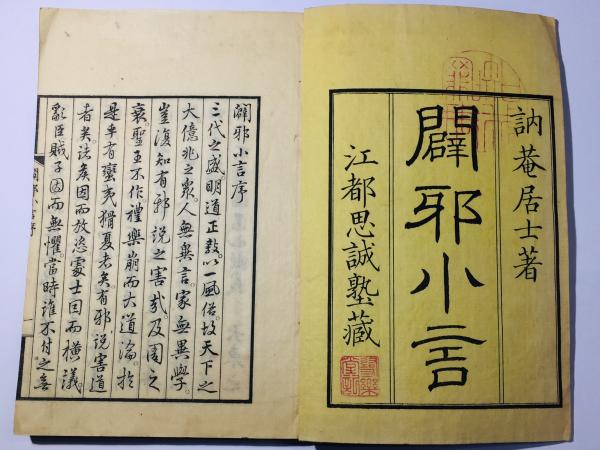 訥菴居士著
闢邪小言
江都思誠塾藏
闢邪小言序
三代之盛明道正教以一風俗故天下之
大億兆之衆人無異言家無異學
豈復知有邪說之害哉及周之
衰聖王不作禮樂崩而大道淪於
是乎有蠻夷猾夏者矣有邪說害道
者矣諸矦因而放恣處士因而橫議
亂臣賊子因而無懼當時誰不付之無
闢邪小言序